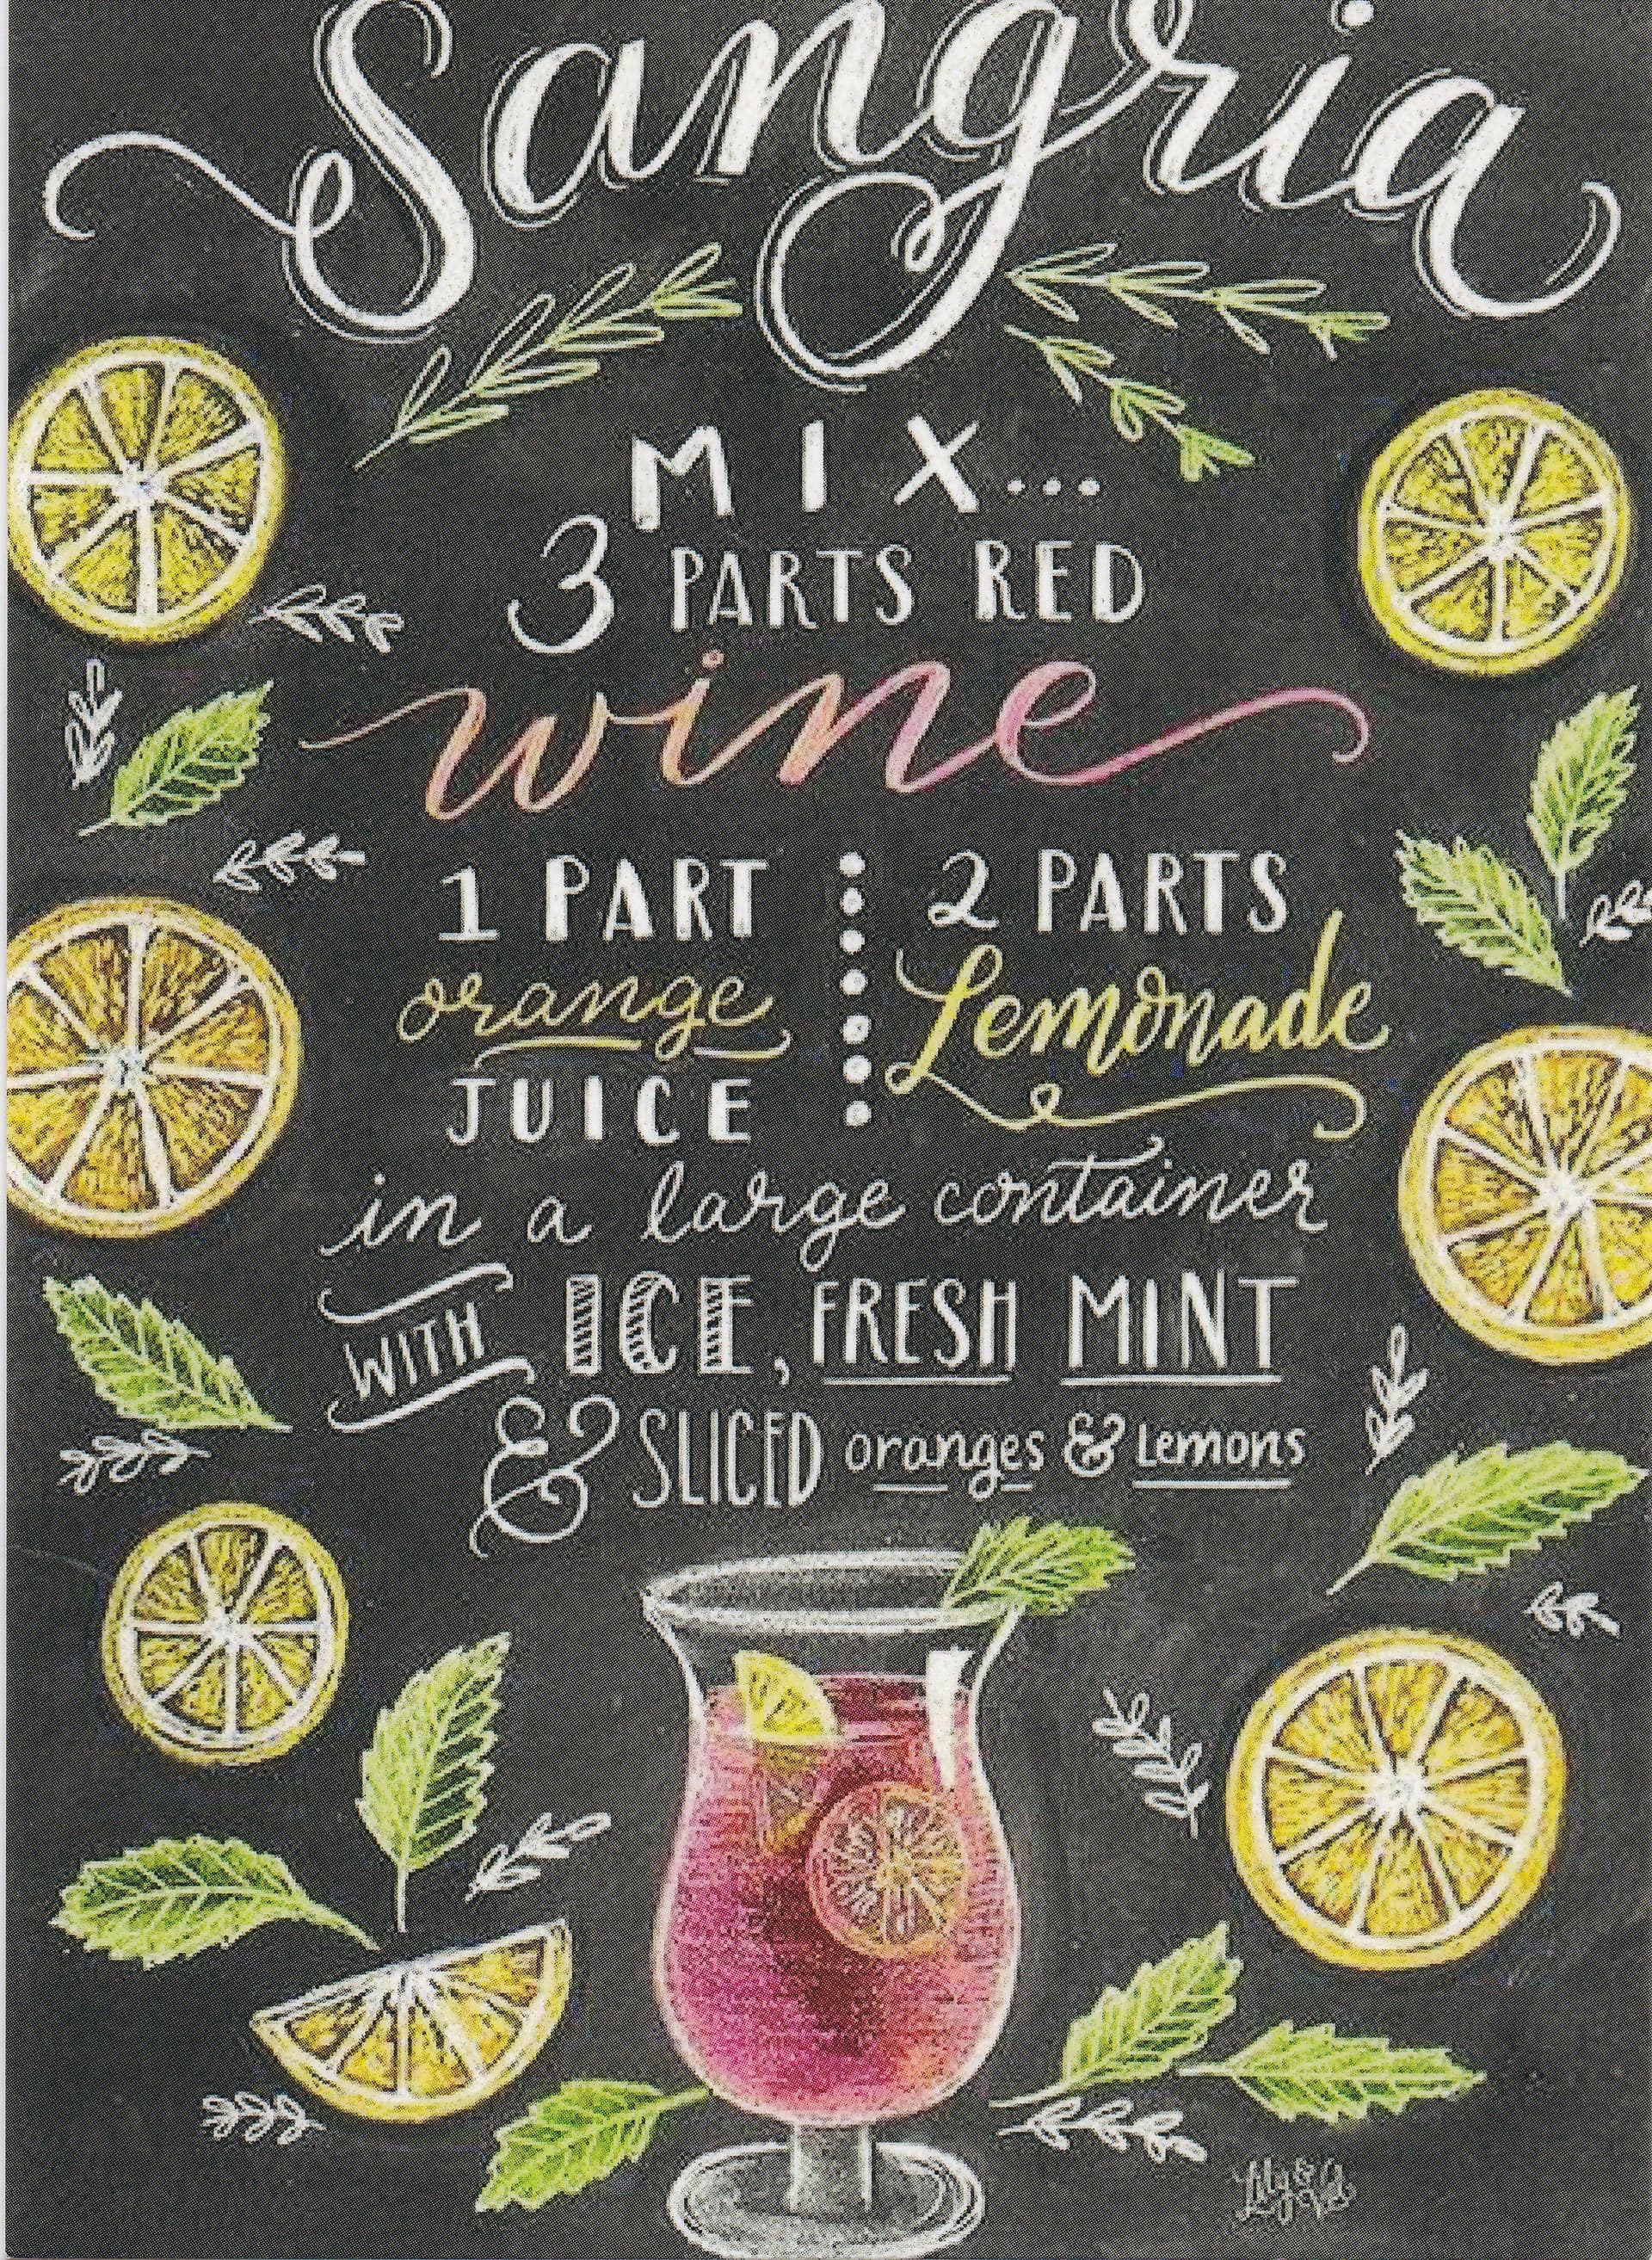 Sangria
MIX...
3 PARTS RED
wine
1 PART
orange
JUICE
2 PARTS
Lemonade
in a large container
WITH ICE, FRESH MINT
& SLICED oranges & Lemons
Lily & Val